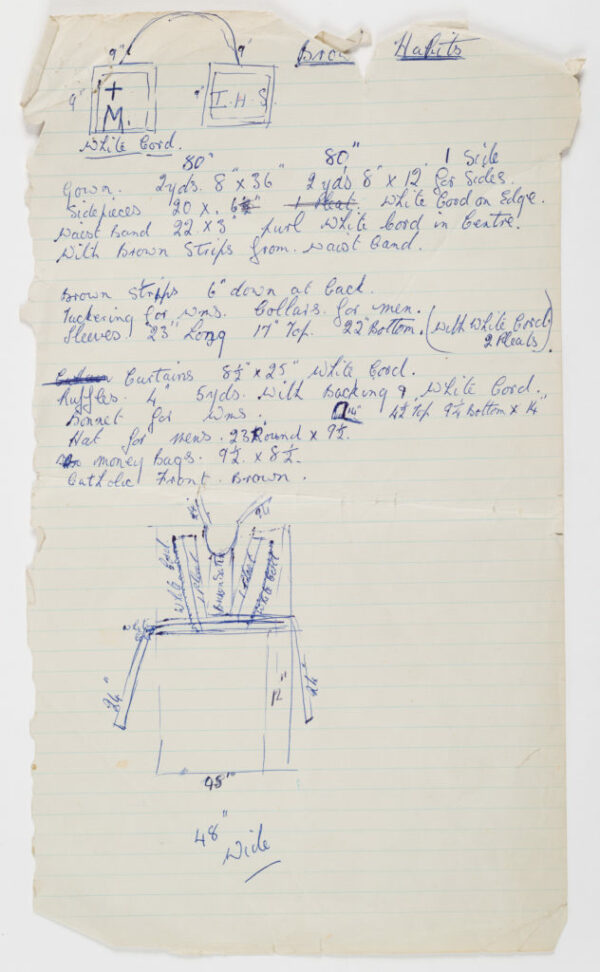 Habits
9" 9"
9" + 9" I.H.S
M.
White Cord.
80" 80" 1 Side
Gown. 2yds. 8" x 36" 2yds 8" x 12" for Sides.
Sidepieces 20 x. 6½" 1 Pleat. White Cord on Edge.
Waist Band 22 x 3" purl White Cord in Centre.
With Brown Strips from. Waist Band.
Brown Strips 6" down at back.
Tuckering for wms. Collars. for men.
Sleeves 23" Long 17" Top. 22" Bottom. (With White Cord
2 Pleats).
Curtains 8½" x 25" White Cord.
Ruffles. 4" 5yds. with Backing & White Cord.
Bonnet for wms. 4½ Top 9¼ Bottom x 14"
Hat for mens. 23 Round x 9½.
money Bags. 9½ x 8½.
Catholic Front. Brown.
24 24
White Cord 1 Pleat 1 Pleat White Cord
White
24" 12" 24"
48"
48"
Wide